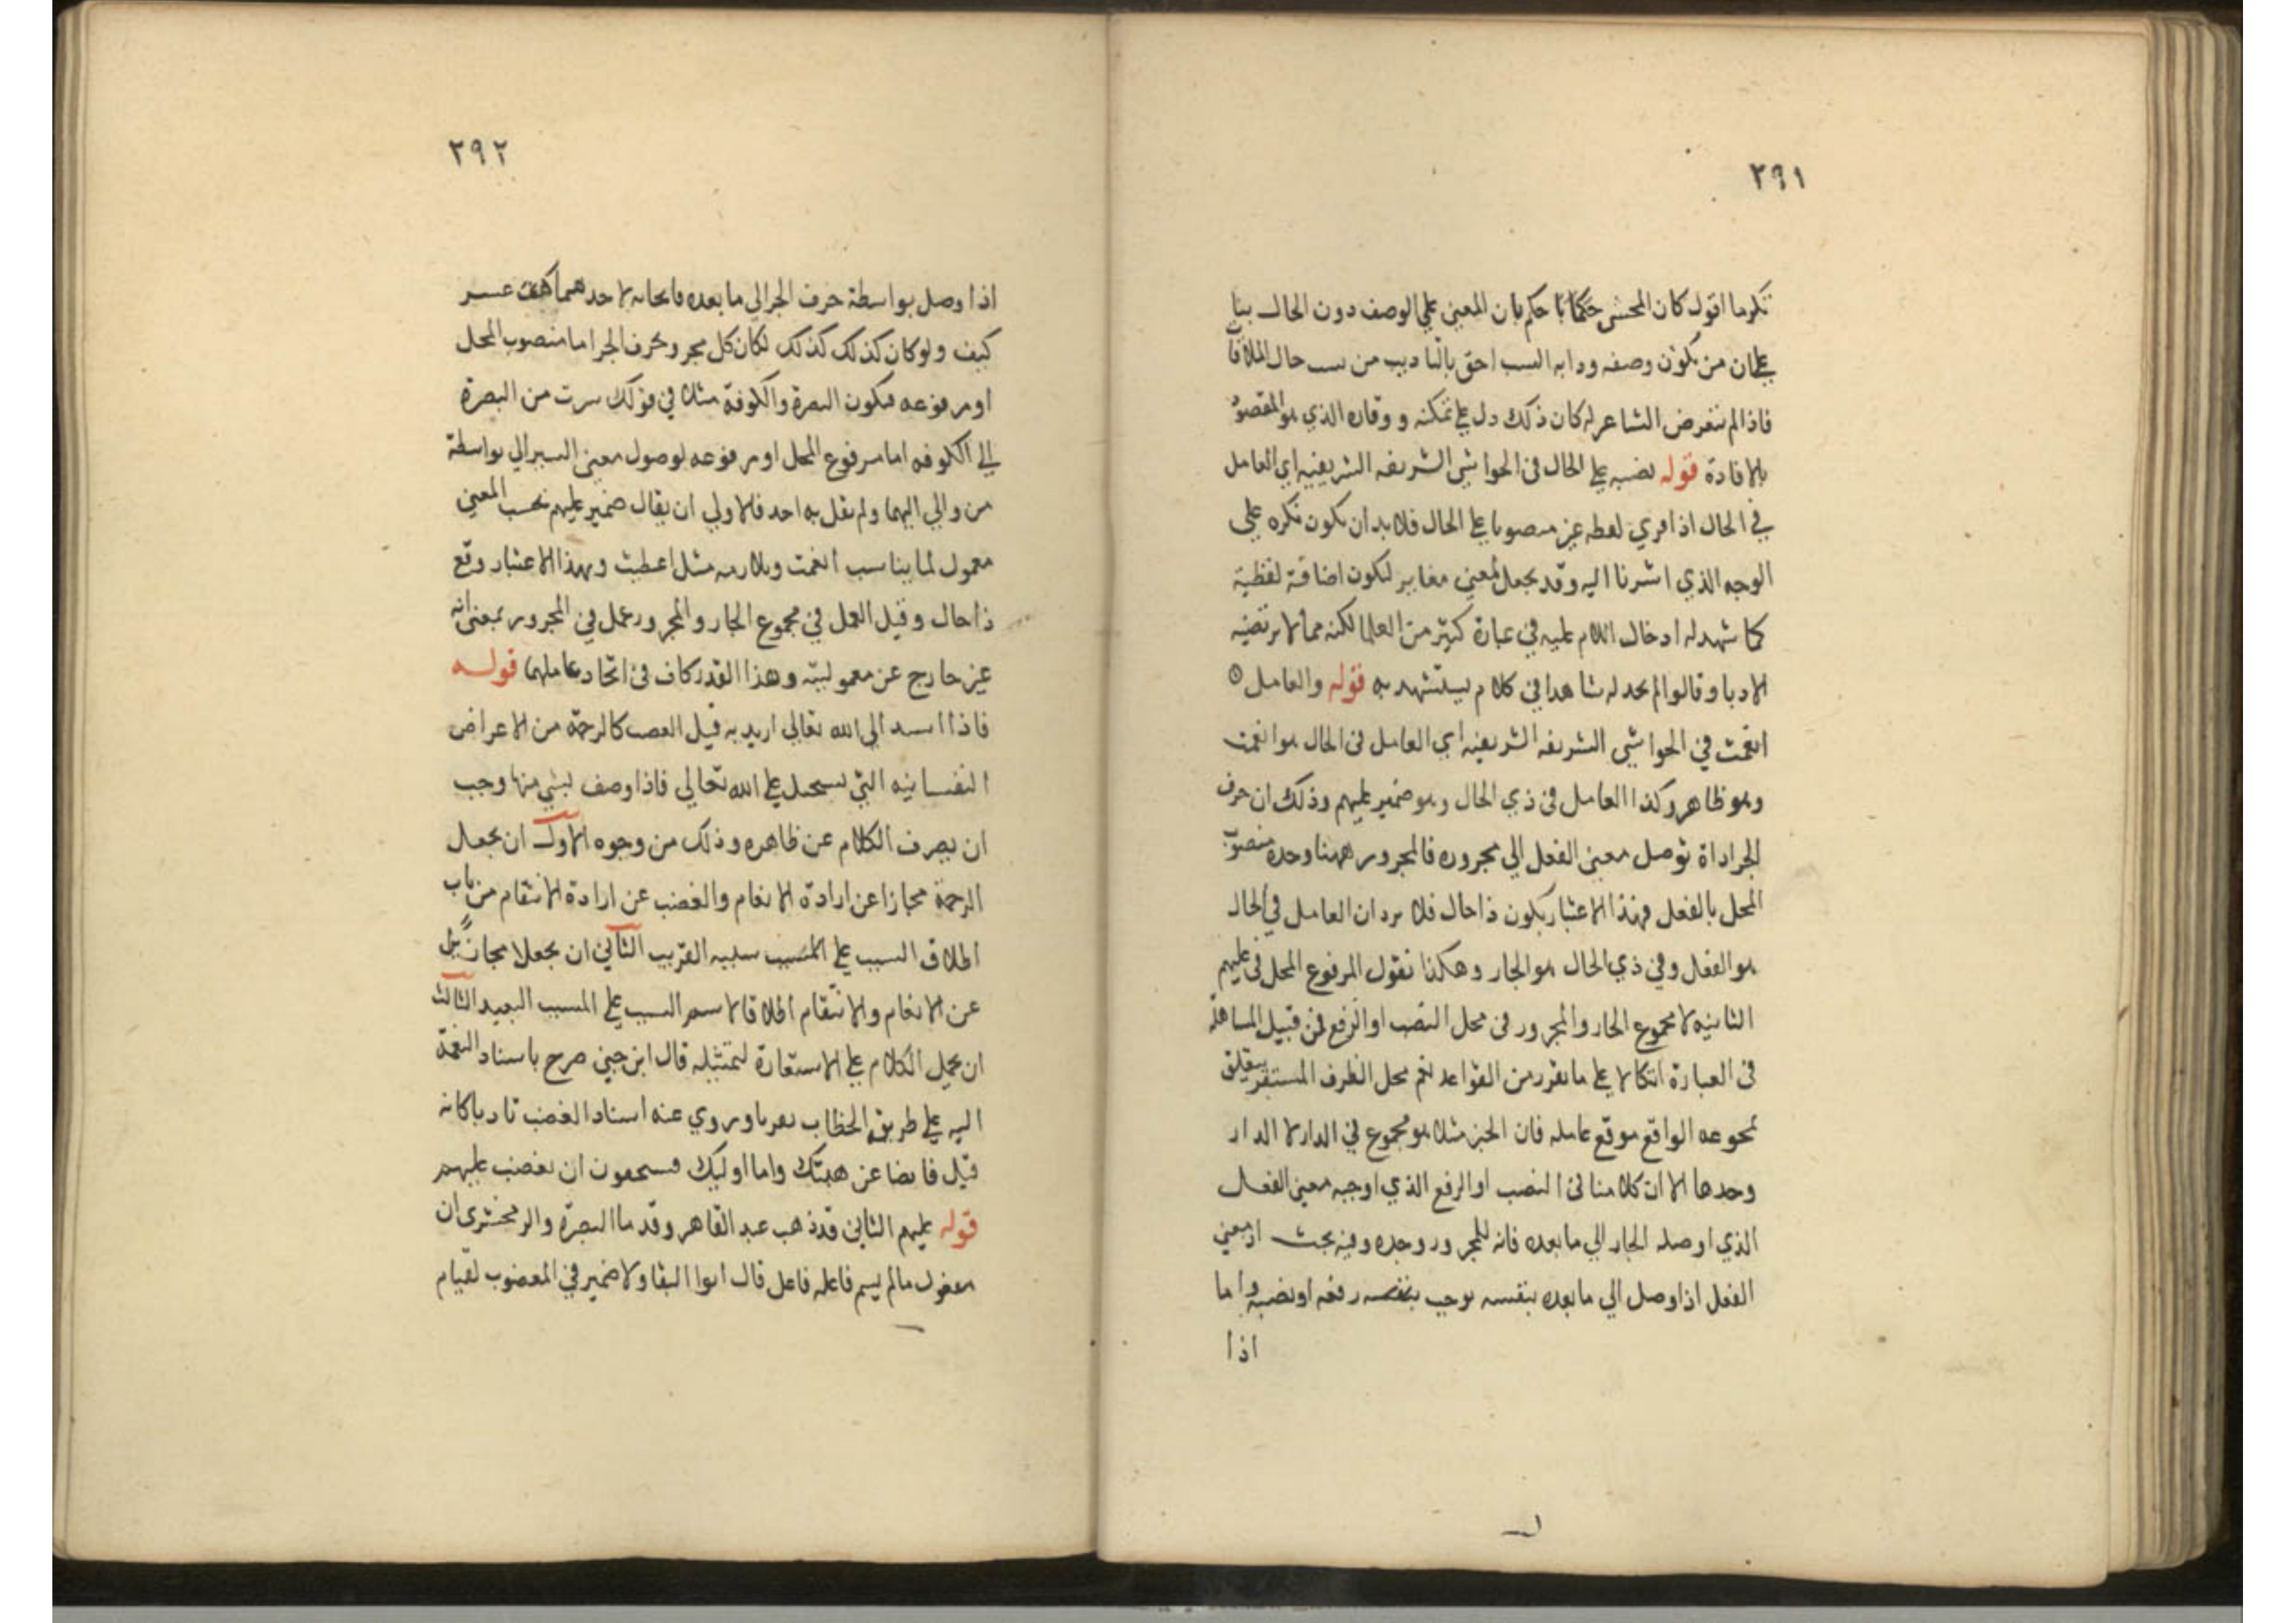 ٢٩١
تكرما اقول كان المحشى حكم بان المعين على الوصف دون الحال بنا
على ان من يكون وصفه ودابه السب احق بالتاديب من سب حال الملاقا
فاذا لم يتعرض الشاعر له كان ذلك دل على تمكنه و وقاره الذي هو المقصود
بالافادة قوله نصبه على الحال فى الحواشى الشريفه الشريفيه اى العامل
في الحال اذا قري لفظه غير منصوبا على الحال فلا بد ان يكون نكره على
الوجه الذي اشرنا اليه وقد يجعل بمعنى مغاير لتكون اضافة لفظية
كما شهد له ادخال اللام عليه في عبارة كثير من العلما لكنه مما لا يرتضيه
الادبا وقالوا لم يجد له شاهدا فى كلام يستشهد به قوله والعامل
انعمت في الحواشي الشريفه الشريفيه اي العامل فى الحال هو انعمت
وهو ظاهر وكذا العامل فى ذي الحال وهو ضمير عليهم وذلك ان حرف
الجر اداة توصل معنى الفعل الي مجروره فالمجرور ههنا وحده منصوب
المحل بالفعل فبهذا الاعتبار يكون ذا حال فلا يرد ان العامل في الحال
هو الفعل وفي ذي الحال هو الجار وهكذا نقول المرفوع المحل فى عليهم
الثانيه لا مجموع الجار والمجرور فى محل النصب او الرفع فمن قبيل المساهله
فى العبارة اتكالا على ما تقرر من القواعد نعم محل الظرف المستقر يتعلق
بمجموعه الواقع موقع عامله فان الخبر مثلا هو مجموع في الدار لا الدار
وحدها الا ان كلامنا فى النصب او الرفع الذي اوجبه معنى الفعل
الذي اوصله الجار الي ما بعده فانه للمجرور وحده وفيه بحث اذ معني
الفعل اذا وصل الي ما بعده بنفسه يوجب بنفسه رفعه او نصبه واما
اذا
٢٩٢
اذا وصل بواسطة حرف الجر الى ما بعده فايجابه لاحدهما عسر
كيف ولو كان كذلك كذلك لكان كل مجرور بحرف الجر اما منصوب المحل
او مرفوعه فيكون البصرة والكوفة مثلا في قولك سرت من البصرة
الى الكوفه اما مرفوع المحل او مرفوعه لوصول معنى السير الي بواسطة
من والي اليهما ولم يقل به احد فالاولي ان يقال ضمير عليهم بحسب المعني
معمول لما يناسب انعمت ويلازمه مثل اعطيت وبهذا الاعتبار وقع
ذا حال وقيل العمل في مجموع الجار والمجرور عمل في المجرور بمعنى انه
غير خارج عن معموليته وهذا القدر كاف فى اتحاد عاملهما قوله
فاذا اسند الى الله تعالي اريد به قيل الغضب كالرحمة من الاعراض
النفسانيه التي تستحيل على الله تعالي فاذا وصف بشي منها وجب
ان يصرف الكلام عن ظاهره وذلك من وجوه الاول ان يجعل
الرحمة مجازا عن ارادة الانعام والغضب عن ارادة الانتقام من باب
اطلاق السبب على المسبب سببه القريب الثاني ان يجعلا مجازين
عن الانعام والانتقام اطلاقا لاسم السبب على المسبب البعيد الثالث
ان يحمل الكلام على الاستعارة لتمثيله قال ابن جني صرح باسناد النعمة
اليه على طريق الخطاب تقربا وروي عنه اسناد الغضب تادبا كانه
قيل فايضا عن هبتك واما اوليك فيستحقون ان يغضب عليهم
قوله عليهم الثاني قد ذهب عبد القاهر وقدما البصرة والزمخشري ان
مفعول مالم يسم فاعله فاعل قال ابوا البقا ولا ضمير في المغضوب لقيام